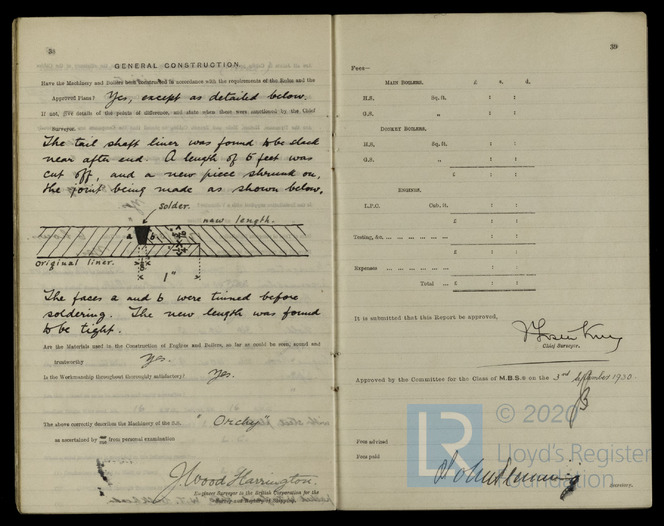 38
GENERAL CONSTRUCTION
Have the Machinery and Boilers been constructed in accordance with the requirements of the Rules and the
Approved Plans? Yes, except as detailed below.
If not, give details of the points of difference, and state when these were sanctioned by the Chief
Surveyor.
The tail shaft liner was found to be slack
near after end. A length of 5 feet was
cut off, and a new piece shrund on,
the joint being made as shown below.
solder.
new length.
a
b
original liner.
1"
The faces a and b were tinned before
soldering. The new length was found
to be tight.
Are the Materials used in the Construction of Engines and Boilers, so far as could be seen, sound and
trustworthy Yes.
Is the Workmanship throughout thoroughly satisfactory? Yes.
The above correctly describes the Machinery of the S.S. "Orchy"
as ascertained by from personal examination
J. Wood Harrington.
Engineer Surveyor to the British Corporation for the
39
Fees—
MAIN BOILERS. £ s. d.
H.S. Sq. ft. : :
G.S. „ : :
DONKEY BOILERS.
H.S. Sq. ft. : :
G.S. „ : :
£ : :
ENGINES.
L.P.C. Cub. ft. : :
£ : :
Testing, &c. ... ... ... ... : :
£ : :
Expenses ... ... ... ... : :
Total ... £ : :
It is submitted that this Report be approved,
Chief Surveyor.
Approved by the Committee for the Class of M.B.S.* on the 3rd September 1930
© 2020
LR
Lloyd's Register
Foundation
Fees advised
Fees paid
Secretary.